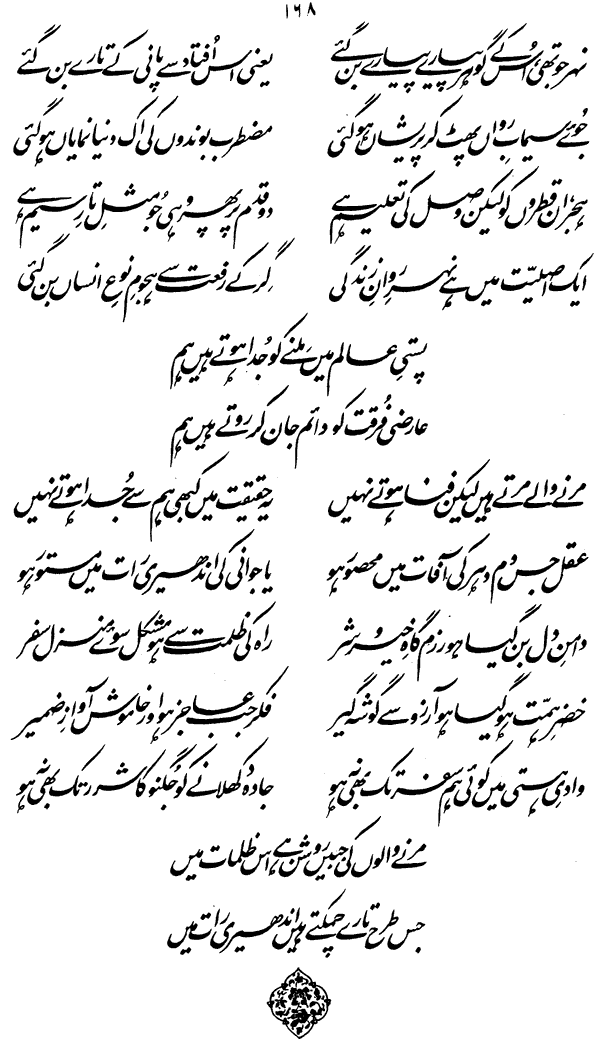 ۱۶۸
نہر جو تھی، اُس کے گوہر پیارے پیارے بن گئے یعنی اس اُفتاد سے پانی کے تارے بن گئے
جُوئے سیمابِ رواں پھٹ کر پریشاں ہو گئی مضطرب بوندوں کی اک دنیا نمایاں ہو گئی
ہجر، ان قطروں کو لیکن وصل کی تعلیم ہے دو قدم پر پھر وہی جُو مثلِ تارِ سیم ہے
ایک اصلیّت میں ہے نہرِ روانِ زندگی گِر کے رفعت سے ہجومِ نوعِ انساں بن گئی
پستیِ عالم میں ملنے کو جُدا ہوتے ہیں ہم
عارضی فُرقت کو دائم جان کر روتے ہیں ہم
مرنے والے مرتے ہیں لیکن فنا ہوتے نہیں یہ حقیقت میں کبھی ہم سے جُدا ہوتے نہیں
عقل جس دم دہر کی آفات میں محصور ہو یا جوانی کی اندھیری رات میں مستور ہو
دامنِ دل بن گیا ہو رزم گاہِ خیر و شر راہ کی ظلمت سے ہو مشکل سوئے منزل سفر
خضرِ ہمّت ہو گیا ہو آرزو سے گوشہ گیر فکر جب عاجز ہو اور خاموش آوازِ ضمیر
وادیِ ہستی میں کوئی ہم سفر تک بھی نہ ہو جادہ دکھلانے کو جُگنو کا شرر تک بھی نہ ہو
مرنے والوں کی جبیں روشن ہے اس ظلمات میں
جس طرح تارے چمکتے ہیں اندھیری رات میں